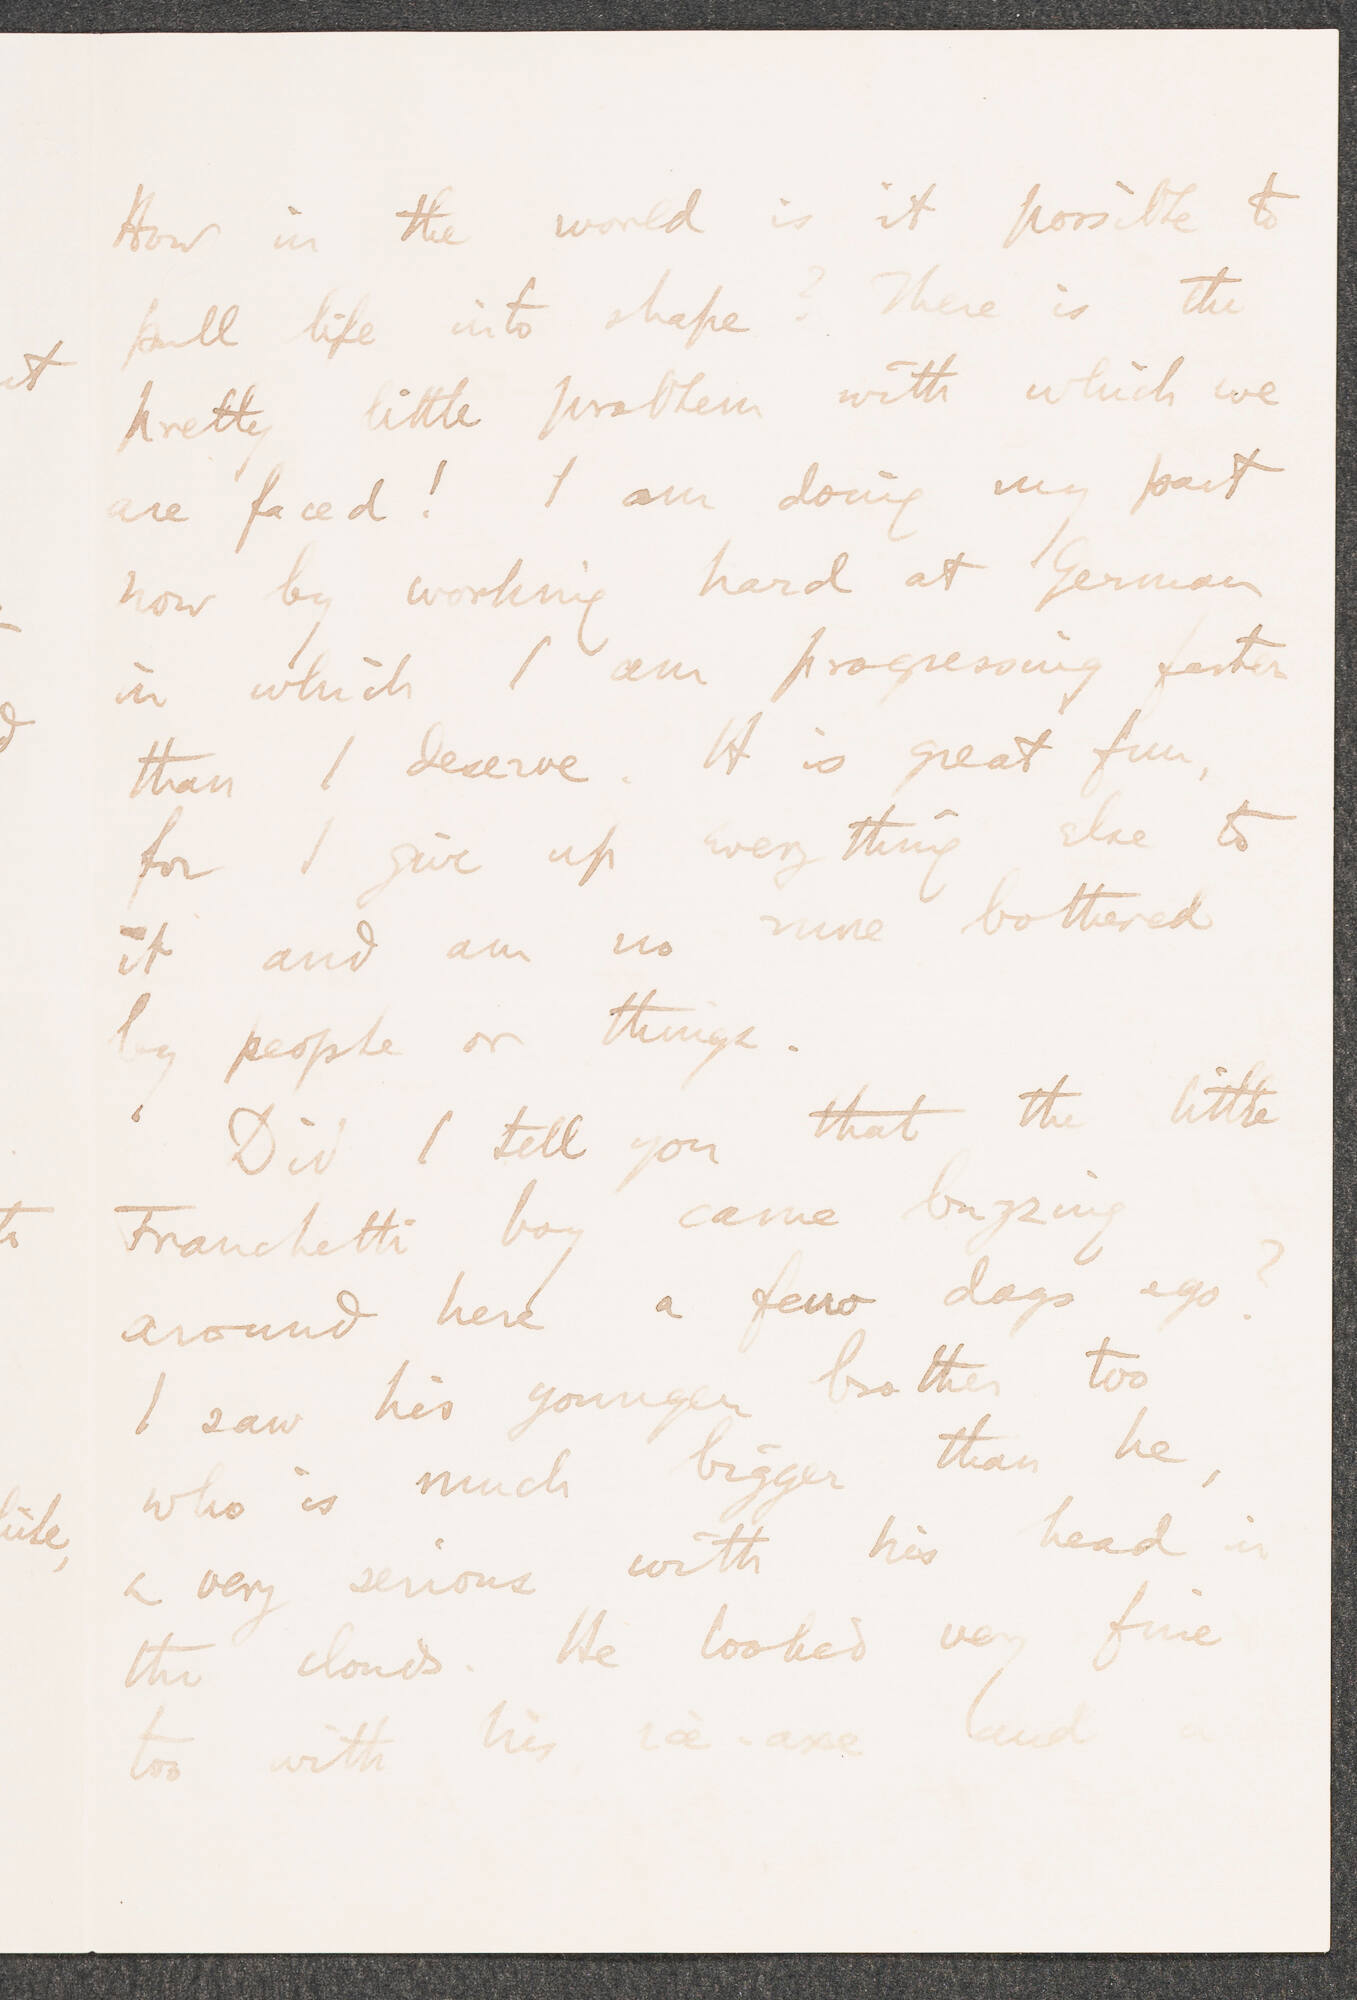 How in the world is it possible to
pull life into shape? There is the
pretty little problem with which we
are faced! I am doing my part
now by working hard at German
in which I am progressing faster
than I deserve. It is great fun,
for I give up everything else to
it and am no more bothered
by people or things.
Did I tell you that the little
Franchetti boy came buzzing
around here a few days ago?
I saw his younger brother too
who is much bigger than he,
a very serious with his head in
the clouds. He looked very fine
too with his ice-axe and a